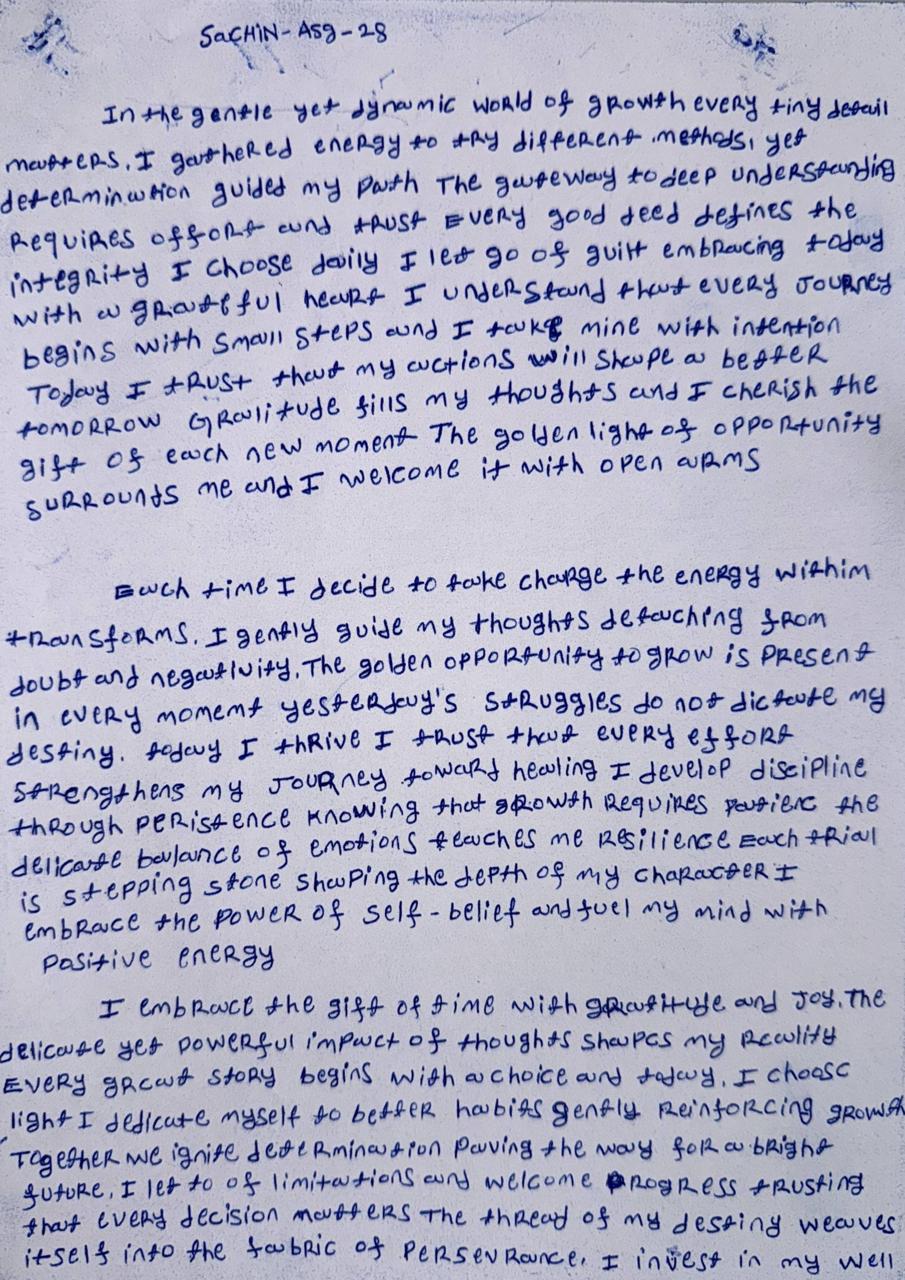 SaCHiN - Asg - 28
In the gentle yet dynamic world of growth every tiny detail
matters. I gathered energy to try different methods, yet
determination guided my path The gateway to deep understanding
Requires offort and trust Every good deed defines the
integrity I choose daily I let go of guilt embracing today
with a grateful heart I understand that every Journey
begins with small steps and I take mine with intention
Today I trust that my actions will shape a better
tomorrow Gralitude fills my thoughts and I cherish the
gift of each new moment The golden light of opportunity
surrounds me and I welcome it with open arms
Each time I decide to take charge the energy withim
transforms. I gently guide my thoughts detaching from
doubt and negativity. The golden opportunity to grow is present
in every moment yesterday's struggles do not dictate my
destiny. today I thrive I trust that every effort
strengthens my Journey toward healing I develop discipline
through peristence knowing that growth requires patienc the
delicate balance of emotions teaches me resilience Each trial
is stepping stone shaping the depth of my character I
embrace the power of self-belief and fuel my mind with
positive energy
I embrace the gift of time with gratitude and Joy. The
delicate yet powerful impact of thoughts shapes my reality
Every great story begins with a choice and today. I choose
light I dedicate myself to better habits gently reinforcing growth
Together we ignite determination paving the way for a bright
future. I let to of limitations and welcome progress trusting
that every decision matters The thread of my destiny weaves
itself into the fabric of persevrance. I invest in my well